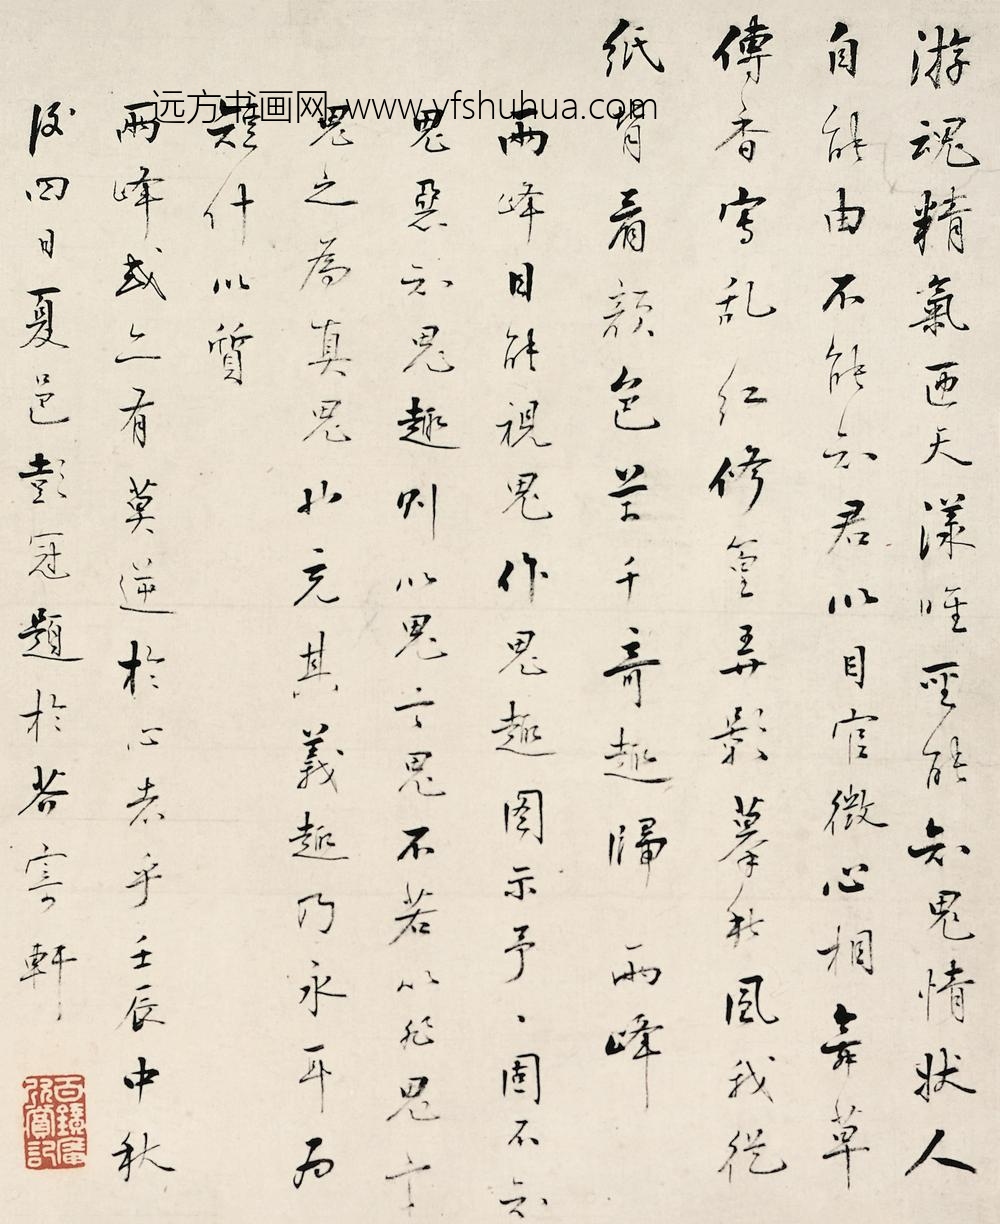 游魂精氣迊天漾唯聖能知鬼情狀人
自能由不能知君以目官徵心相尋草
傳香寫亂红修篁弄影摹秋風我從
紙背看顏色芒千奇趣歸 兩峰
兩峰目能視鬼作鬼趣图示予、固不知
鬼惡知鬼趣则以鬼言鬼不若以非鬼言
鬼之為真鬼也充其義趣乃永耳为
題什以質
兩峰或亦有莫逆於心者乎壬辰中秋
後四日夏邑彭冠題於
寄軒
远方书画网 www.yfshuhua.com